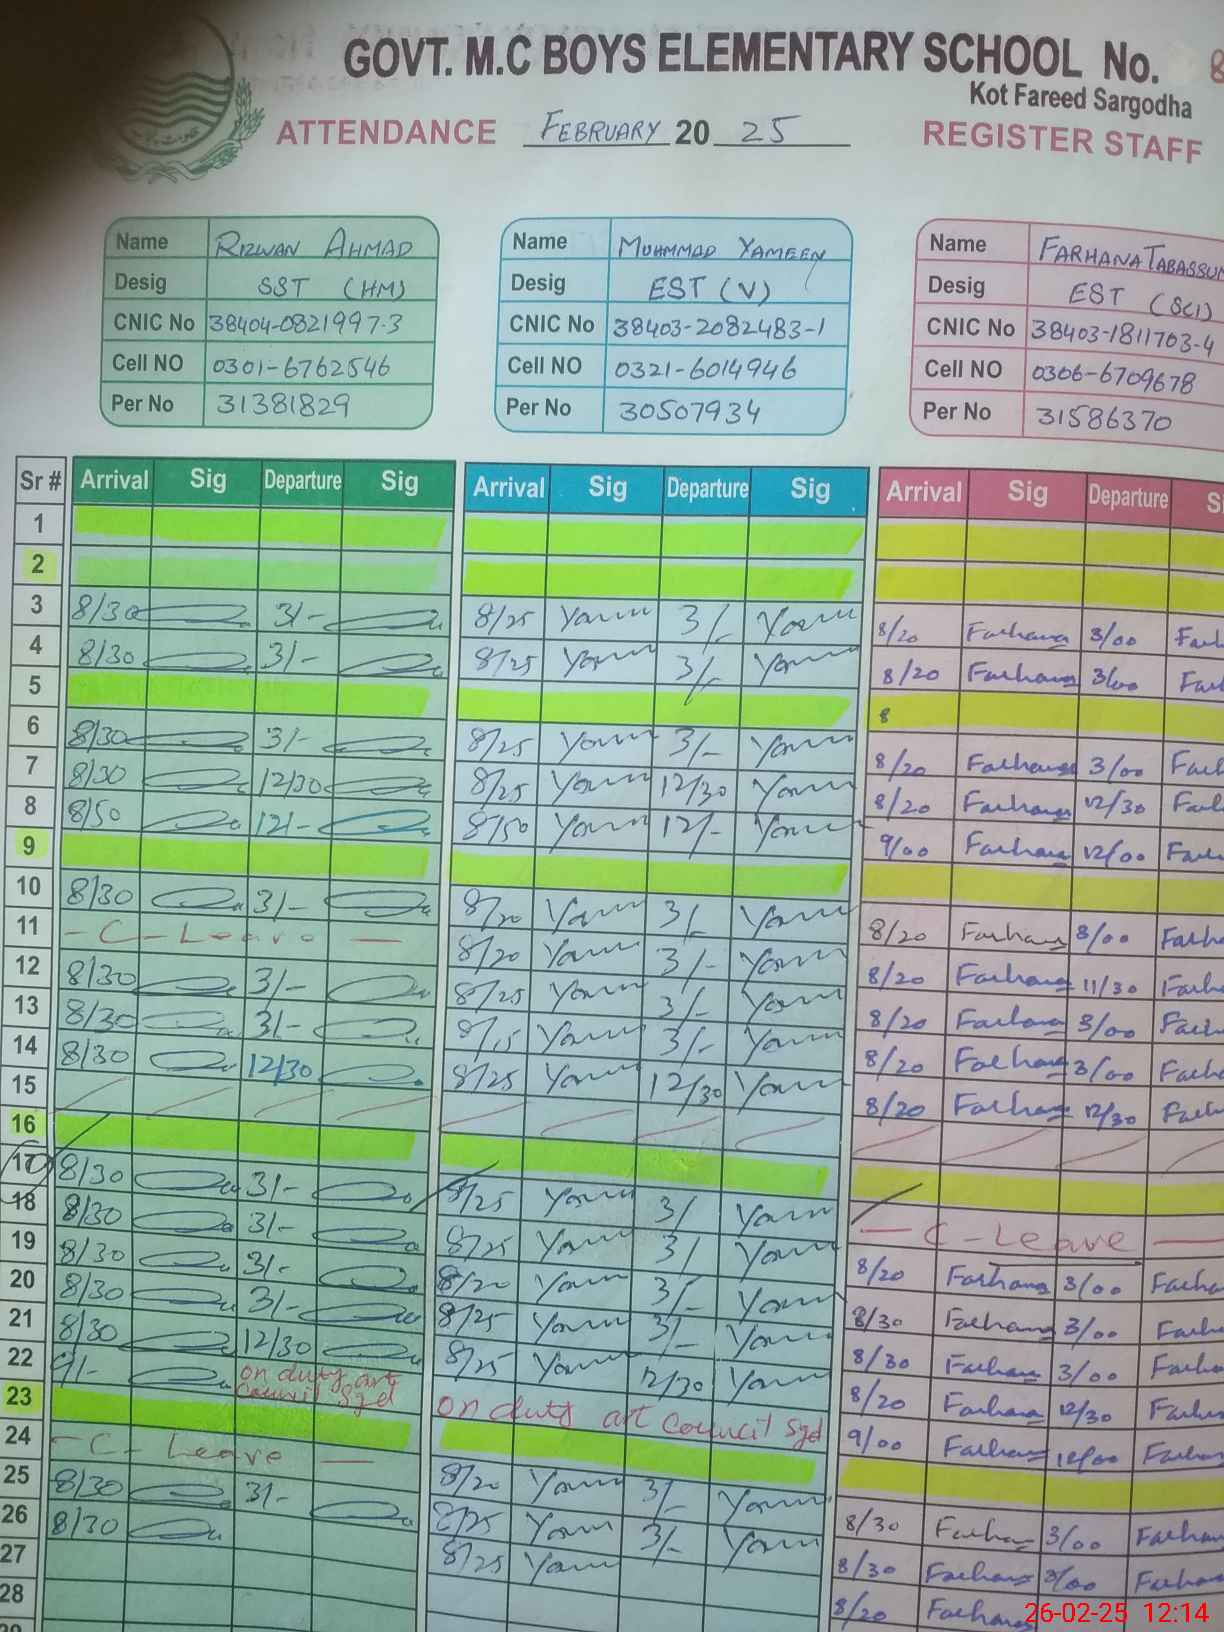 GOVT. M.C BOYS ELEMENTARY SCHOOL No. 8
Kot Fareed Sargodha
ATTENDANCE FEBRUARY 20 25 REGISTER STAFF
Name RIZWAN AHMAD Name MUHMMAD YAMEEN Name FARHANA TABASSUM
Desig SST (HM) Desig EST (V) Desig EST (SCI)
CNIC No 38404-0821997-3 CNIC No 38403-2082483-1 CNIC No 38403-1811703-4
Cell NO 0301-6762546 Cell NO 0321-6014946 Cell NO 0306-6709678
Per No 31381829 Per No 30507934 Per No 31586370
Sr # Arrival Sig Departure Sig Arrival Sig Departure Sig Arrival Sig Departure
1
2
3 8/30 3/- 8/25 3/- 8/20 Farhana 3/00
4 8/30 3/- 8/25 3/- 8/20 Farhana 3/00
5 8
6 8/30 3/- 8/25 3/- 8/20 Farhana 3/00
7 8/30 12/30 8/25 12/30 8/20 Farhana 12/30
8 8/50 12/- 8/50 12/- 9/00 Farhana 12/00
9
10 8/30 3/- 8/20 3/- 8/20 Farhana 3/00
11 - C - Leave - 8/20 3/- 8/20 Farhana 11/30
12 8/30 3/- 8/25 3/- 8/20 Farhana 3/00
13 8/30 3/- 8/15 3/- 8/20 Farhana 3/00
14 8/30 12/30 8/25 12/30 8/20 Farhana 12/30
15
16
17 8/30 3/- 8/25 3/ - C - Leave -
18 8/30 3/- 8/25 3/ 8/20 Farhana 3/00
19 8/30 3/- 8/20 3/- 8/30 Farhana 3/00
20 8/30 3/- 8/25 3/- 8/30 Farhana 3/00
21 8/30 12/30 8/25 12/30 8/20 Farhana 12/30
22 9/- on duty art council Sgd on duty art council Sgd 9/00 Farhana 12/00
23
24 - C - Leave - 8/20 3/- 8/30 Farhana 3/00
25 8/30 3/- 8/25 3/- 8/30 Farhana 3/00
26 8/30 8/25 8/20 Farhana
27
28
26-02-25 12:14